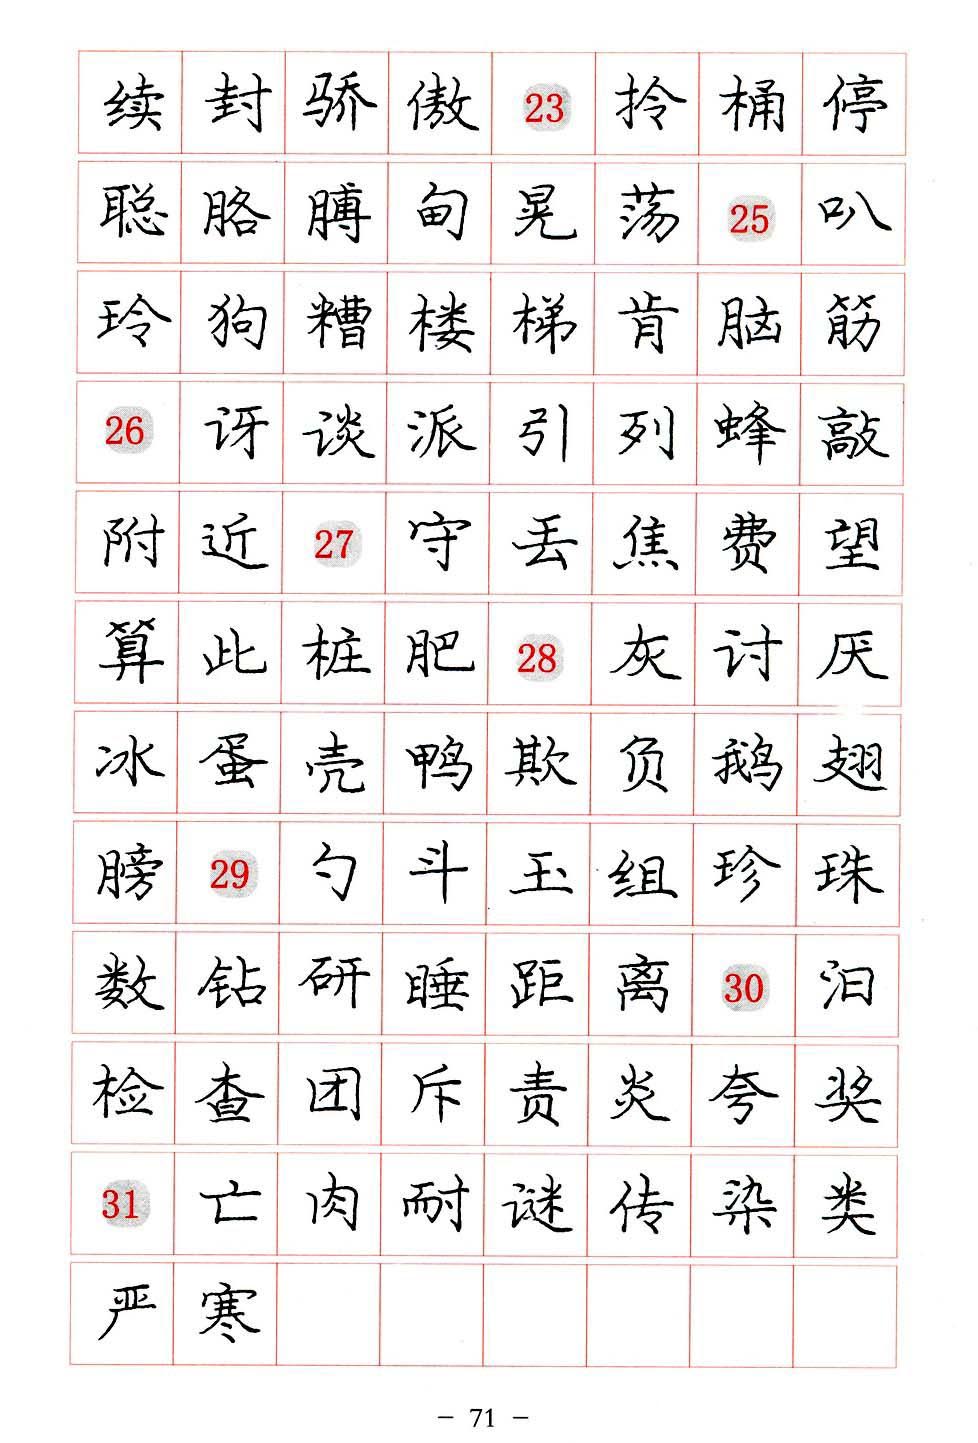 续 封 骄 傲 23 拎 桶 停
聪 胳 膊 甸 晃 荡 25 叭
玲 狗 糟 楼 梯 肯 脑 筋
26 讶 谈 派 引 列 蜂 敲
附 近 27 守 丢 焦 费 望
算 此 桩 肥 28 灰 讨 厌
冰 蛋 壳 鸭 欺 负 鹅 翅
膀 29 勺 斗 玉 组 珍 珠
数 钻 研 睡 距 离 30 汩
检 查 团 斥 责 炎 夸 奖
31 亡 肉 耐 谜 传 染 类
严 寒
- 71 -